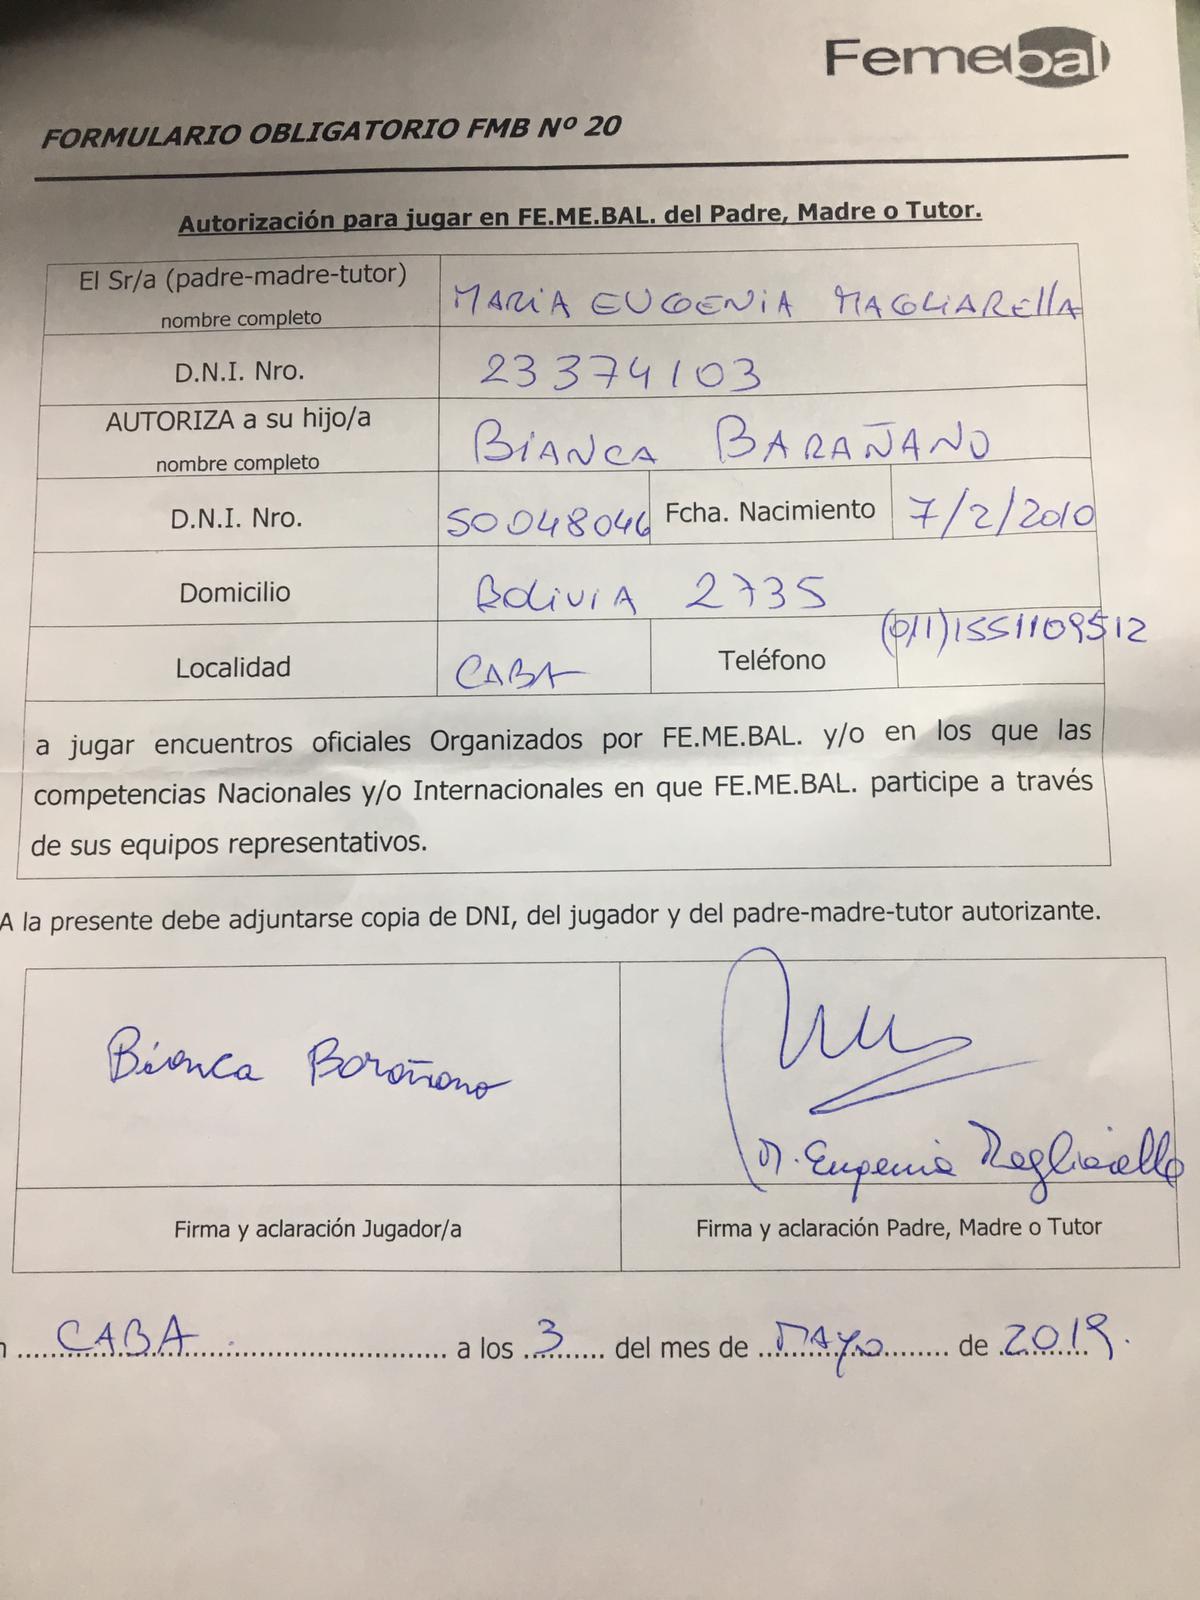 Femebal
FORMULARIO OBLIGATORIO FMB Nº 20
Autorización para jugar en FE.ME.BAL. del Padre, Madre o Tutor.
El Sr/a (padre-madre-tutor)
nombre completo
MARIA EUGENIA MAGLIARELLA
D.N.I. Nro.
23374103
AUTORIZA a su hijo/a
nombre completo
BIANCA BARAÑANO
D.N.I. Nro.
50048046
Fcha. Nacimiento
7/2/2010
Domicilio
BOLIVIA 2735
Localidad
CABA
Teléfono
(011)1551109512
a jugar encuentros oficiales Organizados por FE.ME.BAL. y/o en los que las
competencias Nacionales y/o Internacionales en que FE.ME.BAL. participe a través
de sus equipos representativos.
A la presente debe adjuntarse copia de DNI, del jugador y del padre-madre-tutor autorizante.
Bianca Barañano
M. Eugenia Magliarella
Firma y aclaración Jugador/a
Firma y aclaración Padre, Madre o Tutor
n ..... CABA ..... a los 3 del mes de MAYO de 2019.